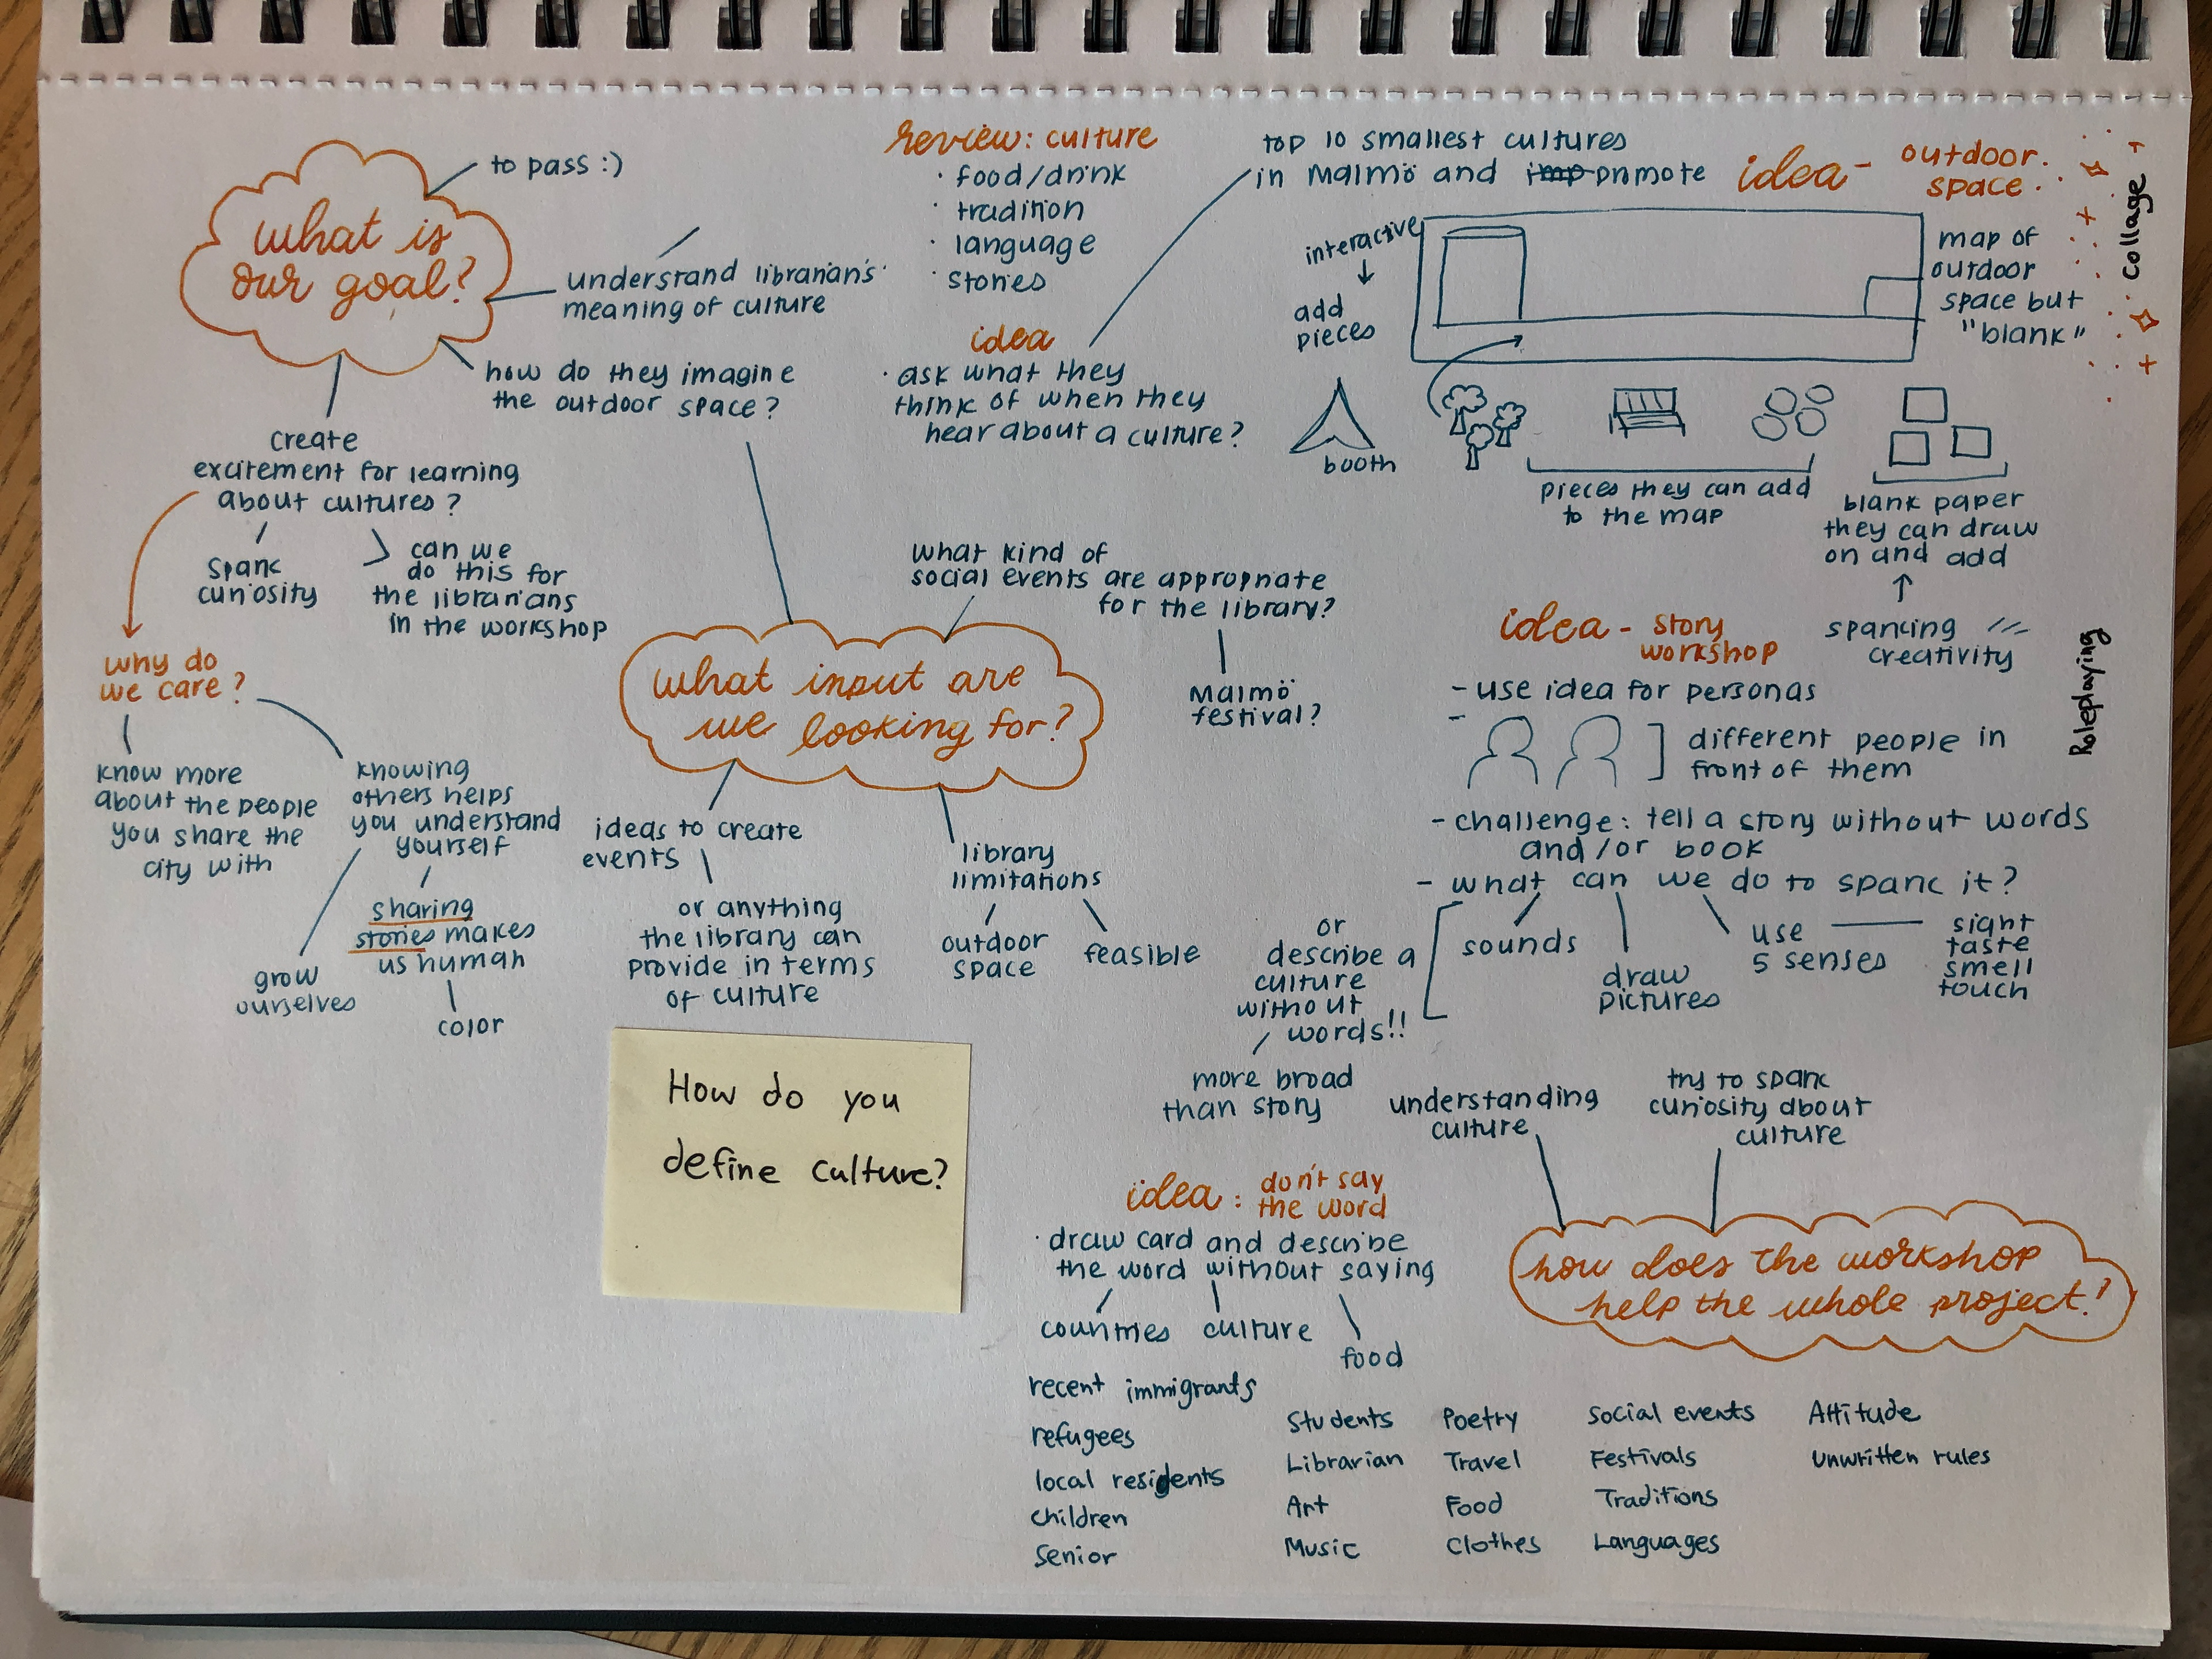 what is
our goal?
to pass :)
understand librarian's
meaning of culture
how do they imagine
the outdoor space?
create
excitement for learning
about cultures?
spark
curiosity
can we
do this for
the librarians
in the workshop
why do
we care?
know more
about the people
you share the
city with
knowing
others helps
you understand
yourself
grow
ourselves
sharing
stories makes
us human
color
review: culture
· food/drink
· tradition
· language
· stories
idea
· ask what they
think of when they
hear about a culture?
top 10 smallest cultures
in Malmö and imp promote
idea - outdoor
space
collage
interactive
add
pieces
map of
outdoor
space but
"blank"
booth
pieces they can add
to the map
blank paper
they can draw
on and add
sparking
creativity
what kind of
social events are appropriate
for the library?
Malmö
festival?
what input are
we looking for?
ideas to create
events
or anything
the library can
provide in terms
of culture
library
limitations
outdoor
space
feasible
How do you
define culture?
idea - story
workshop
Roleplaying
- use idea for personas
-
different people in
front of them
- challenge: tell a story without words
and/or book
- what can we do to spark it?
sounds
draw
pictures
use
5 senses
sight
taste
smell
touch
or
describe a
culture
without
words!!
more broad
than story
understanding
culture
try to spark
curiosity about
culture
how does the workshop
help the whole project?
idea: don't say
the word
· draw card and describe
the word without saying
countries
culture
food
recent immigrants
refugees
local residents
children
senior
Students
Librarian
Art
Music
Poetry
Travel
Food
Clothes
Social events
Festivals
Traditions
Languages
Attitude
Unwritten rules